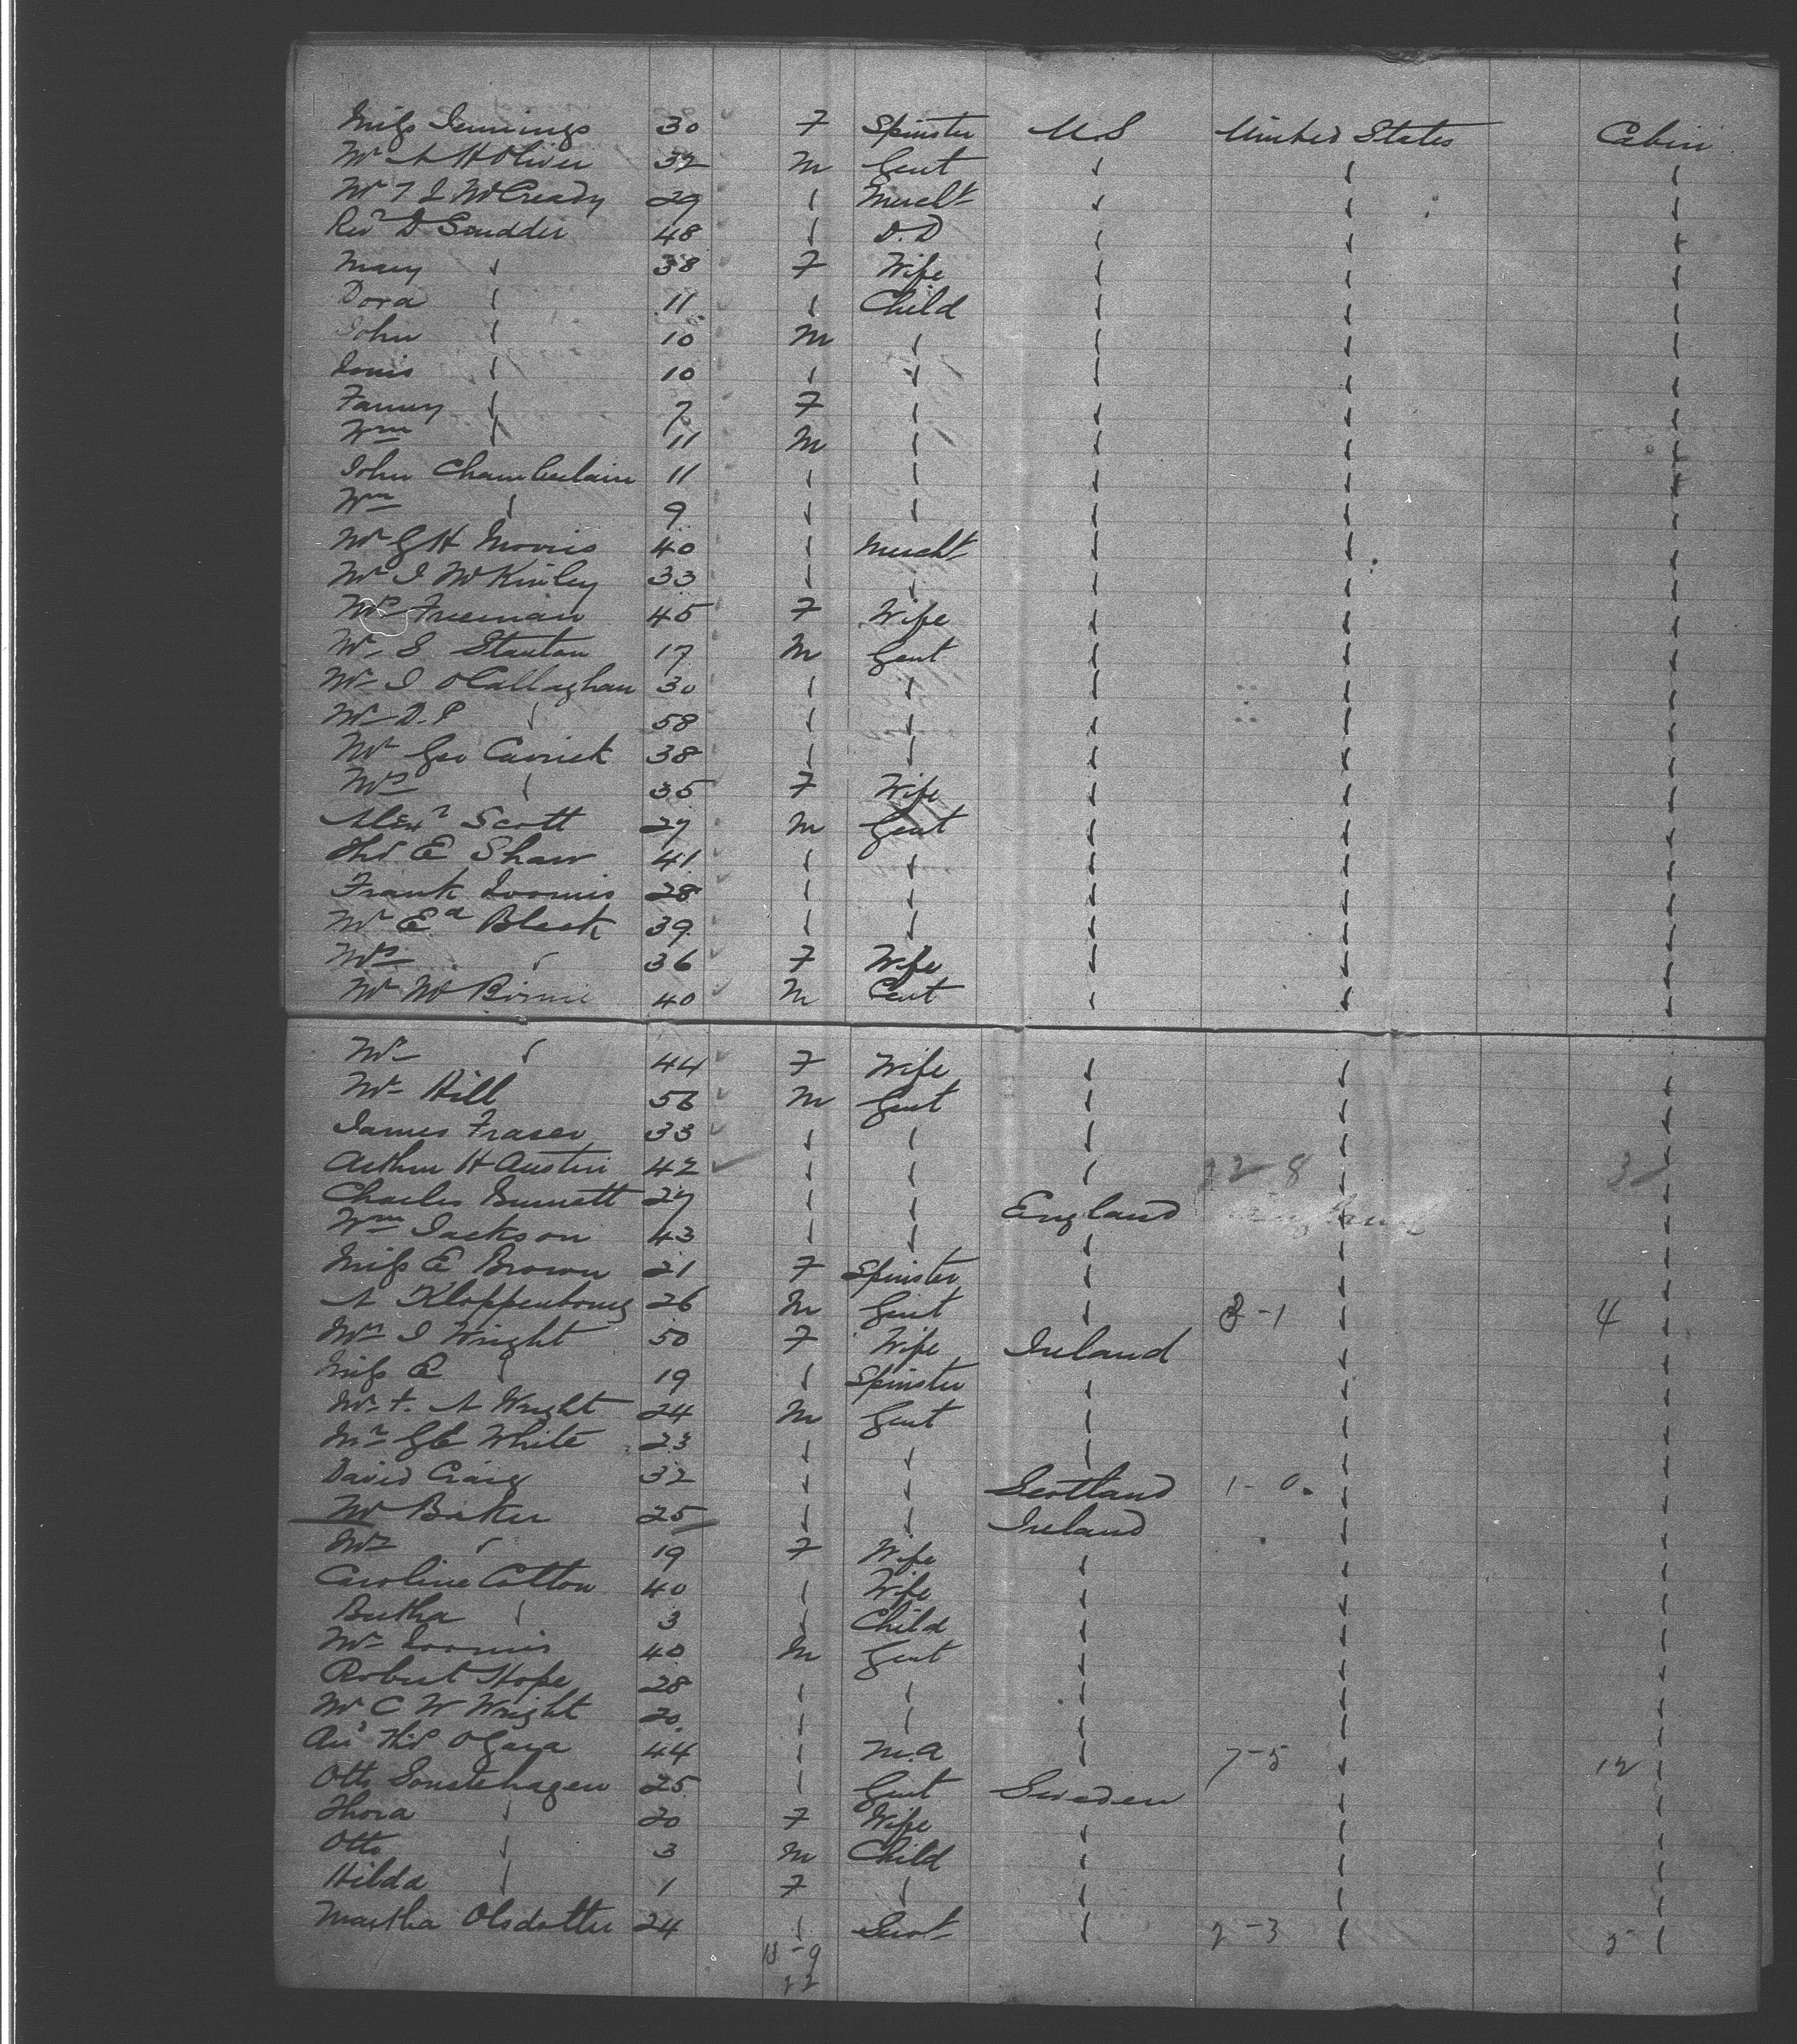 Miss Jennings 30 F Spinster U.S United States Cabin
Mr A H Oliver 32 M Gent
Mr T J McCready 29 " Mercht
Revd D Scudder 48 " D.D
Mary " 38 F Wife
Dora " 11 " Child
John " 10 M "
Louis " 10 " "
Fanny " 7 F "
Wm " 11 M "
John Chamberlain 11 " "
Wm " 9 " "
Mr G H Morris 40 " Mercht
Mr J McKinley 33 " "
Mrs Freeman 45 F Wife
Mr S. Stanton 17 M Gent
Mr J OCallaghan 30 " "
Mr D.P " 58 " "
Mr Geo Carrick 38 " "
Mrs " 35 F Wife
Alexr Scott 27 M Gent
Thos E Shaw 41 " "
Frank Loomis 28 " "
Mr Ed Black 39 " "
Mrs " 36 F Wife
Mr W Birnie 40 M Gent
Mrs " 44 F Wife
Mr Hill 56 M Gent
James Fraser 33 " "
Arthur H Austin 42 " " " 22-8 3
Charles Burnett 27 " " England
Wm Jackson 43 " " "
Miss E Brown 21 F Spinster "
A Kloppenbourg 26 M Gent " 3-1 4
Mrs J Wright 50 F Wife Ireland
Miss E " 19 " Spinster "
Mr A Wright 24 M Gent "
Mr White 23 " " "
David Craig 32 " " Scotland 1-0
Mr Baker 25 " " Ireland
Mrs " 19 F Wife "
Caroline Cotton 40 " Wife "
Bertha " 3 " Child "
Mr Loomis 40 M Gent "
Robert Hope 28 " " "
Mr C W Wright 20 " " "
Thos OGara 44 " M.A " 7-5 12
Otto Sonstehagen 25 " Gent Sweden
Thora " 20 F Wife "
Otto " 3 M Child "
Hilda " 1 F " "
Martha Olsdotter 24 " Servt " 2-3 5
-9
22